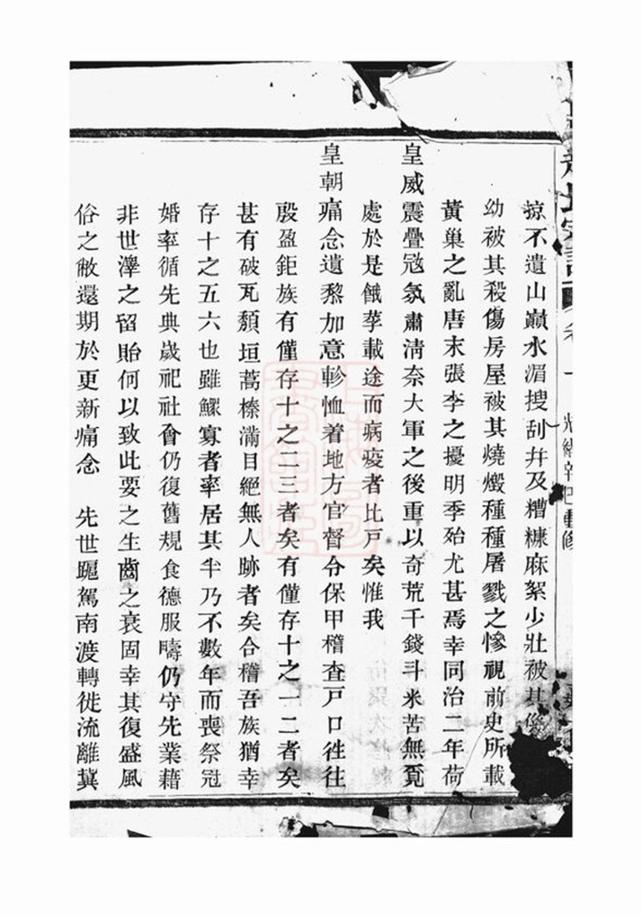 氏宗譜 卷一 光緒辛巳重修
掠不遺山巔水湄搜刮幷及糟糠麻絮少壯被其
幼被其殺傷房屋被其燒燬種種屠戮之慘視前史所載
黃巢之亂唐末張李之擾明季殆尤甚焉幸同治二年荷
皇威震疊冦氛肅清奈大軍之後重以奇荒千錢斗米苦無覓
處於是餓莩載途而病疫者比戸矣惟我
皇朝痌念遺黎加意軫恤着地方官督令保甲稽查戸口徃徃
殷盈鉅族有僅存十之二三者矣有僅存十之一二者矣
甚有破瓦頽垣蒿榛滿目絕無人跡者矣合稽吾族猶幸
存十之五六也雖鰥寡者率居其半乃不數年而喪祭冠
婚率循先典歲祀社會仍復舊規食德服疇仍守先業藉
非世澤之留貽何以致此要之生齒之衰固幸其復盛風
俗之敝還期於更新痛念 先世躧駕南渡轉徙流離冀